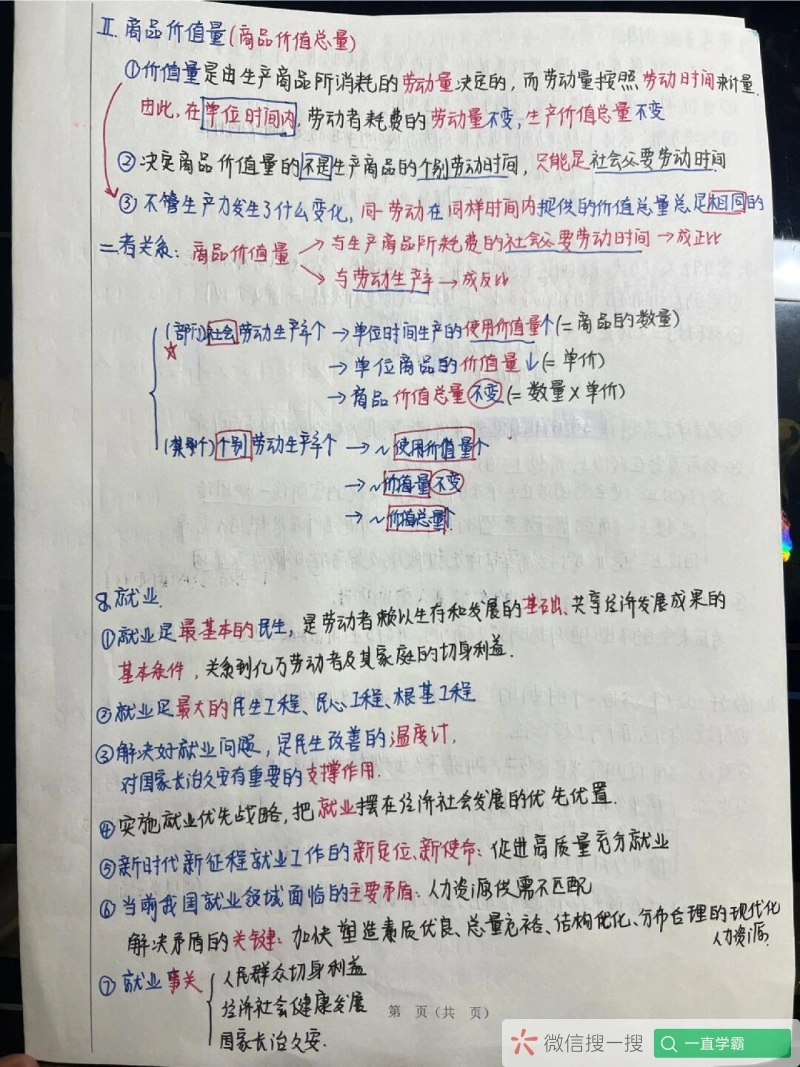 Ⅱ. 商品价值量(商品价值总量)
①价值量是由生产商品所消耗的劳动量决定的,而劳动量按照劳动时间来计量.
因此,在单位时间内,劳动者耗费的劳动量不变,生产价值总量不变
②决定商品价值量的不是生产商品的个别劳动时间,只能是社会必要劳动时间.
③不管生产力发生了什么变化,同一劳动在同样时间内提供的价值总量总是相同的
二者关系:商品价值量 → 与生产商品所耗费的社会必要劳动时间 → 成正比
→ 与劳动生产率 → 成反比
(部门)社会劳动生产率↑ → 单位时间生产的使用价值量↑(=商品的数量)
☆ → 单位商品的价值量↓(=单价)
→ 商品价值总量不变(=数量×单价)
(某个)个别劳动生产率↑ → ~使用价值量↑
→ ~价值量不变
→ ~价值总量↑
8.就业.
①就业是最基本的民生,是劳动者赖以生存和发展的基础、共享经济发展成果的
基本条件,关系到亿万劳动者及其家庭的切身利益.
②就业是最大的民生工程、民心工程、根基工程
③解决好就业问题,是民生改善的温度计,
对国家长治久安有重要的支撑作用.
④实施就业优先战略,把就业摆在经济社会发展的优先位置.
⑤新时代新征程就业工作的新定位、新使命:促进高质量充分就业
⑥当前我国就业领域面临的主要矛盾:人力资源供需不匹配
解决矛盾的关键:加快塑造素质优良、总量充裕、结构优化、分布合理的现代化
人力资源.
⑦就业事关 人民群众切身利益
经济社会健康发展
国家长治久安.
第 页(共 页)
微信搜一搜 一直学霸